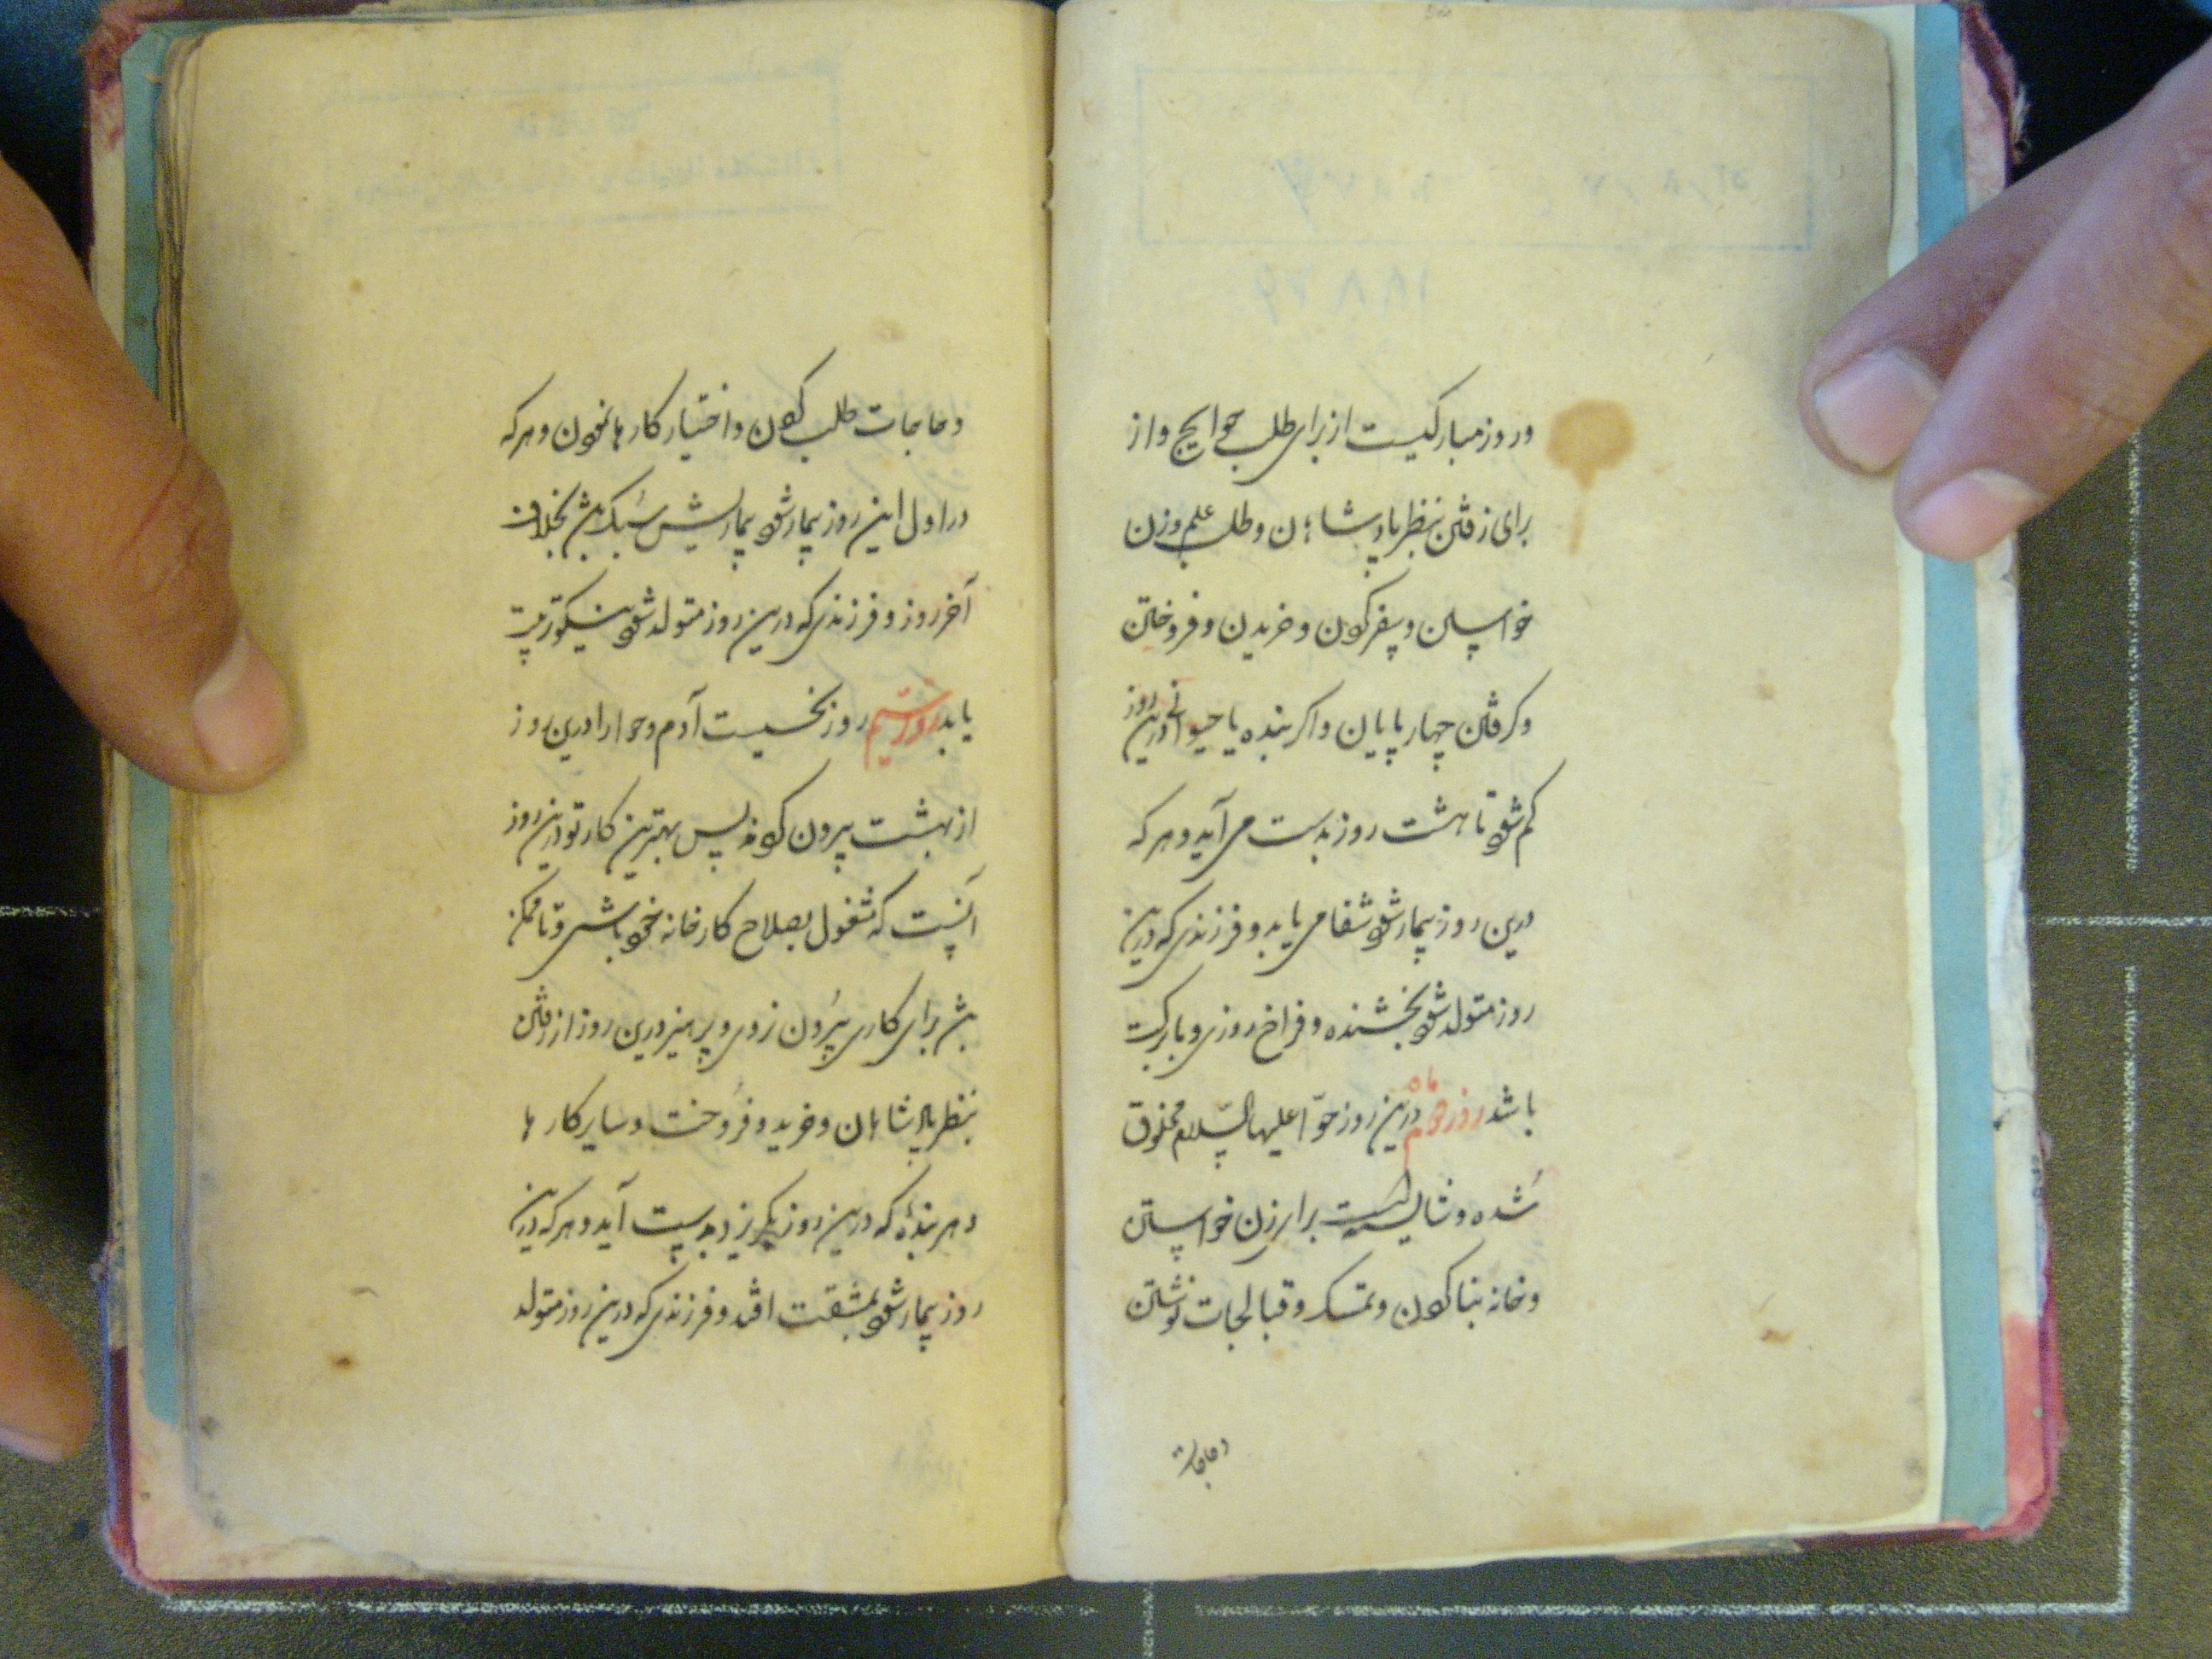 و روز مبارکیست از برای طلب حوایج و از
برای رفتن بنظر پادشاهان و طلب علم و زن
خواستن و سفر کردن و خریدن و فروختن
و گرفتن چهار پایان و اگر بنده یا حیوانی درین روز
کم شود تا هشت روز بدست می آید و هر که
درین روز بیمار شود شفا می یابد و فرزندی که درین
روز متولد شود بخشنده و فراخ روزی و با برکت
باشد روز دوم ماه درین روز حوّا علیها السّلام مخلوق
شده و شایسته است برای زن خواستن
و خانه بنا کردن و تمسک و قبالجات نوشتن
و حاجات
و حاجات طلب کردن و اختیار کارها نمودن و هر که
در اول این روز بیمار شود بیماریش سبک باشد بخلاف
آخر روز و فرزندی که درین روز متولد شود نیکو تربیت
یابد روز سیم روز نحسیست آدم و حوا را درین روز
از بهشت بیرون کردند پس بهترین کار تو درین روز
آنست که مشغول بصلاح کار خانه خود باشی و تا ممکن
باشد برای کاری بیرون نروی و بپرهیز درین روز از رفتن
بنظر پادشاهان و خرید و فروخت و سایر کارها
و هر بندهٔ که درین روز بگریزد بدست آید و هر که درین
روز بیمار شود بمشقت افتد و فرزندی که درین روز متولد